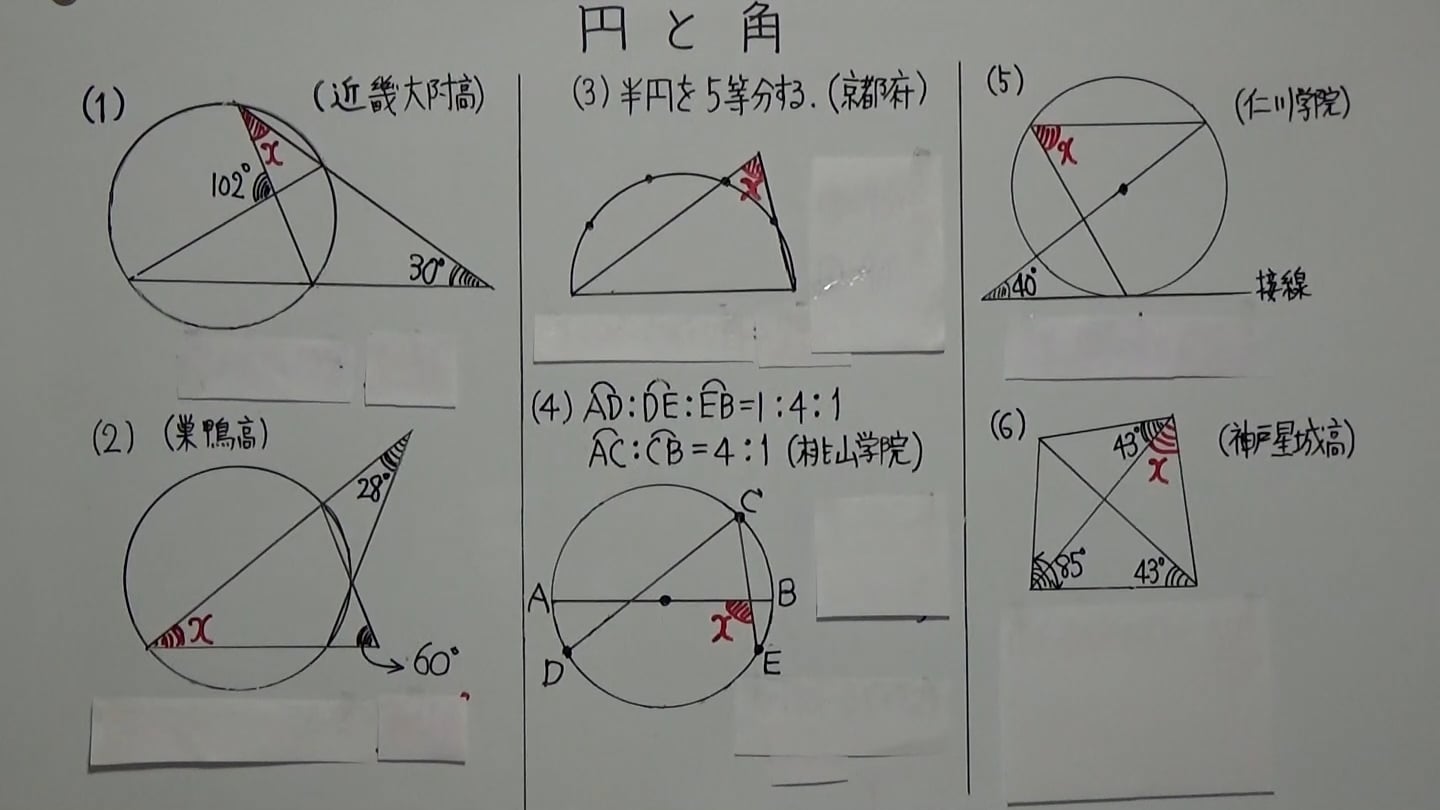 円と角
(1) (近畿大附高)
102°
x
30°
(2) (巣鴨高)
28°
x
60°
(3) 半円を5等分する. (京都府)
x
(4) A͡D:D͡E:E͡B=1:4:1
A͡C:C͡B=4:1 (桃山学院)
C
A
B
x
D
E
(5) (仁川学院)
x
40°
接線
(6) (神戸星城高)
43°
x
85°
43°